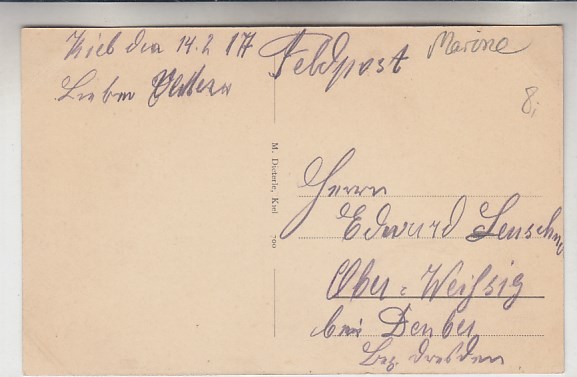 Kiel den 14.2 17
Lieber
Feldpost
Marine
8,-
M. Dieterle, Kiel 700
Herrn
Edward Leuschner
Ober-Weissig
bei Deuben
Bez. Dresden